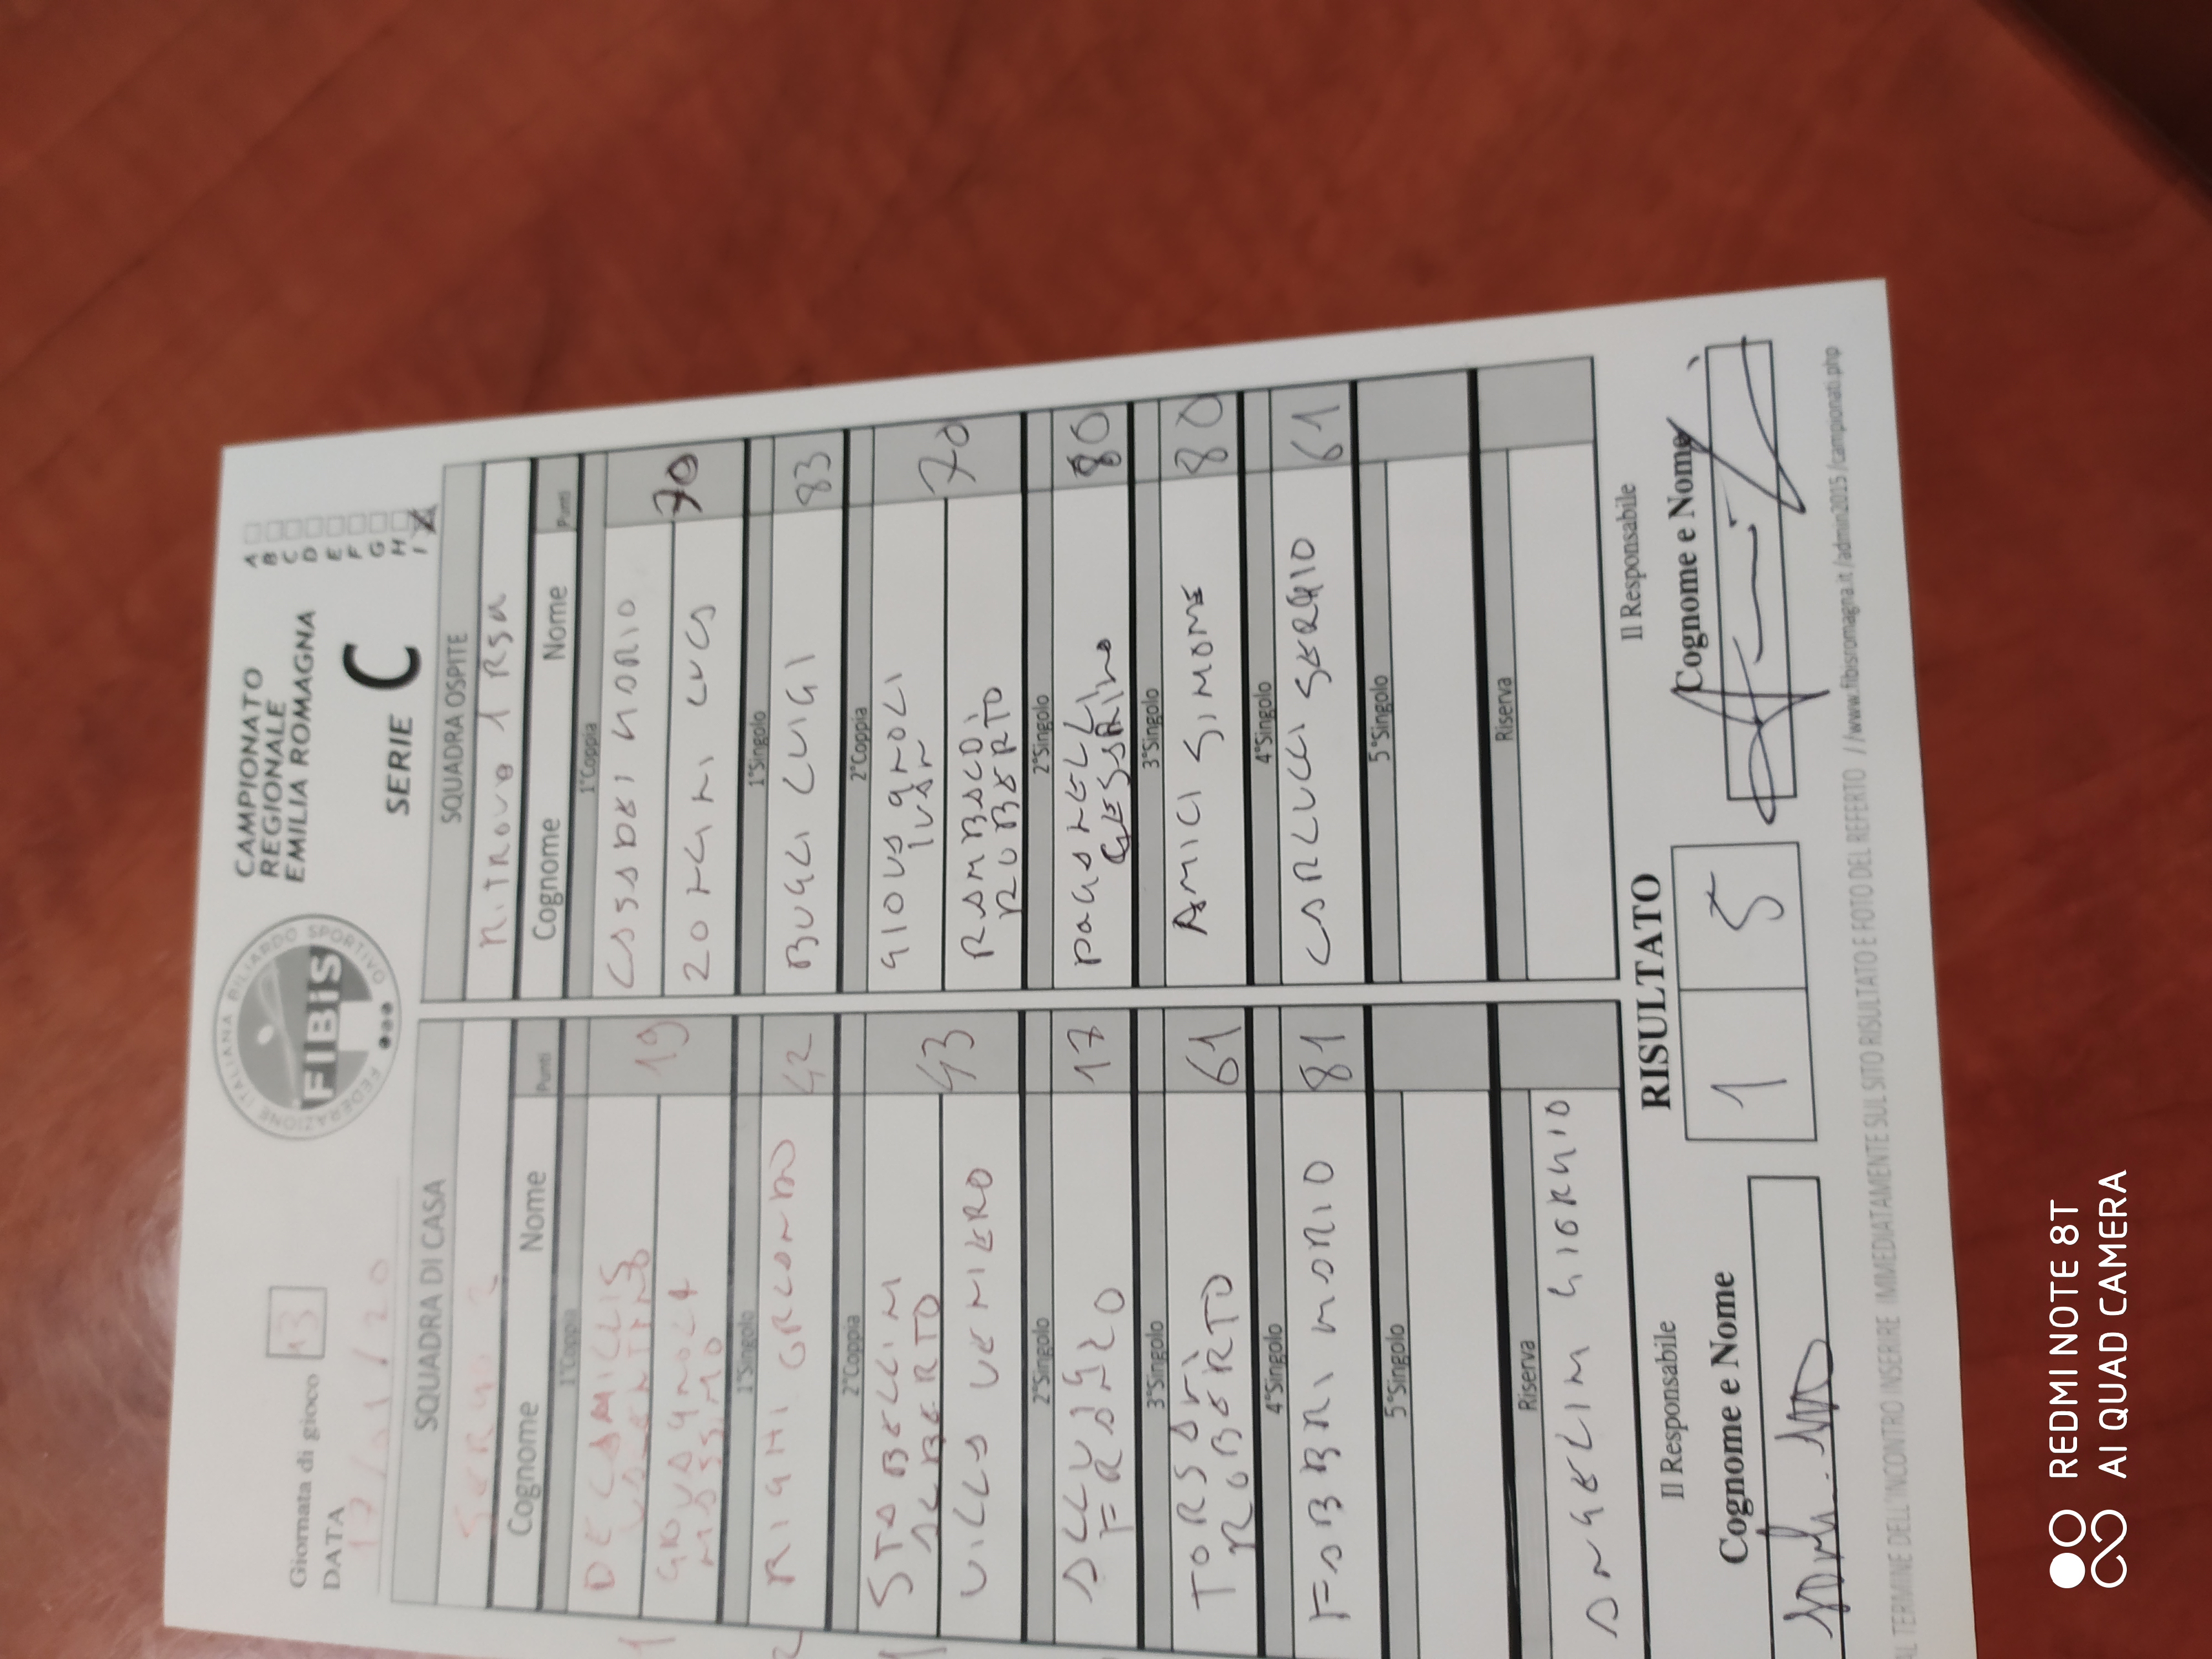 Giornata di gioco 13
DATA
17/01/20
FEDERAZIONE ITALIANA BILIARDO SPORTIVO
FIBiS
CAMPIONATO
REGIONALE
EMILIA ROMAGNA
SERIE C
A
B
C
D
E
F
G
H
I X
SQUADRA DI CASA
Cognome Nome Punti
1°Coppia
DE CAMILLIS
19
MASSIMO
1°Singolo
RIGHI ORLANDO 42
2°Coppia
STABELLINI
ALBERTO
43
VILLA VENIERO
2°Singolo
17
3°Singolo
ROBERTO
61
4°Singolo
FABBRI MARIO 81
5°Singolo
Riserva
ANGELINI GIORGIO
SQUADRA OSPITE
RITROVO 1 RSM
Cognome Nome Punti
1°Coppia
CASADEI MARIO
70
ZONGINI LUCA
1°Singolo
BUGLI LUIGI 83
2°Coppia
GIOVAGNOLI
IVAN
70
RAMBALDI
ROBERTO
2°Singolo
PAGANELLI
CESARINO
80
3°Singolo
AMICI SIMONE 80
4°Singolo
CARLUCCI SERGIO 61
5°Singolo
Riserva
Il Responsabile
Cognome e Nome
RISULTATO
1 5
Il Responsabile
Cognome e Nome
AL TERMINE DELL'INCONTRO INSERIRE IMMEDIATAMENTE SUL SITO RISULTATO E FOTO DEL REFERTO //www.fibisromagna.it/admin2015/campionati.php
REDMI NOTE 8T
AI QUAD CAMERA